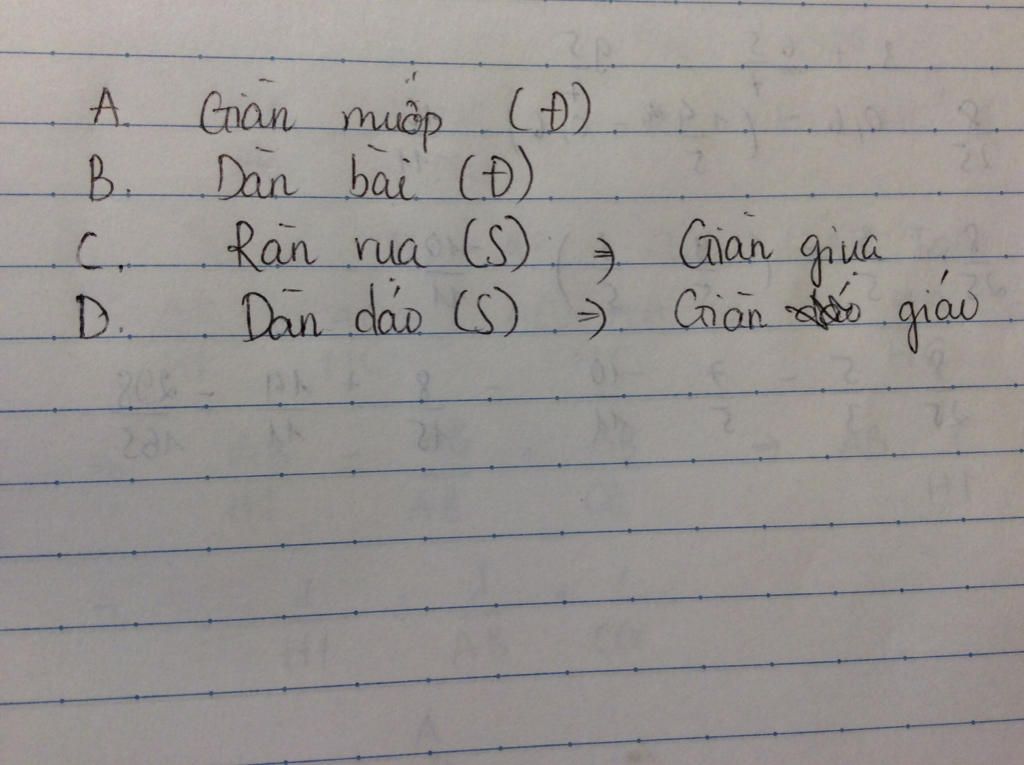 A. Giàn mướp (Đ)
B. Dàn bài (Đ)
C. Ràn rụa (S) => Giàn giụa
D. Dàn dáo (S) => Giàn giáo